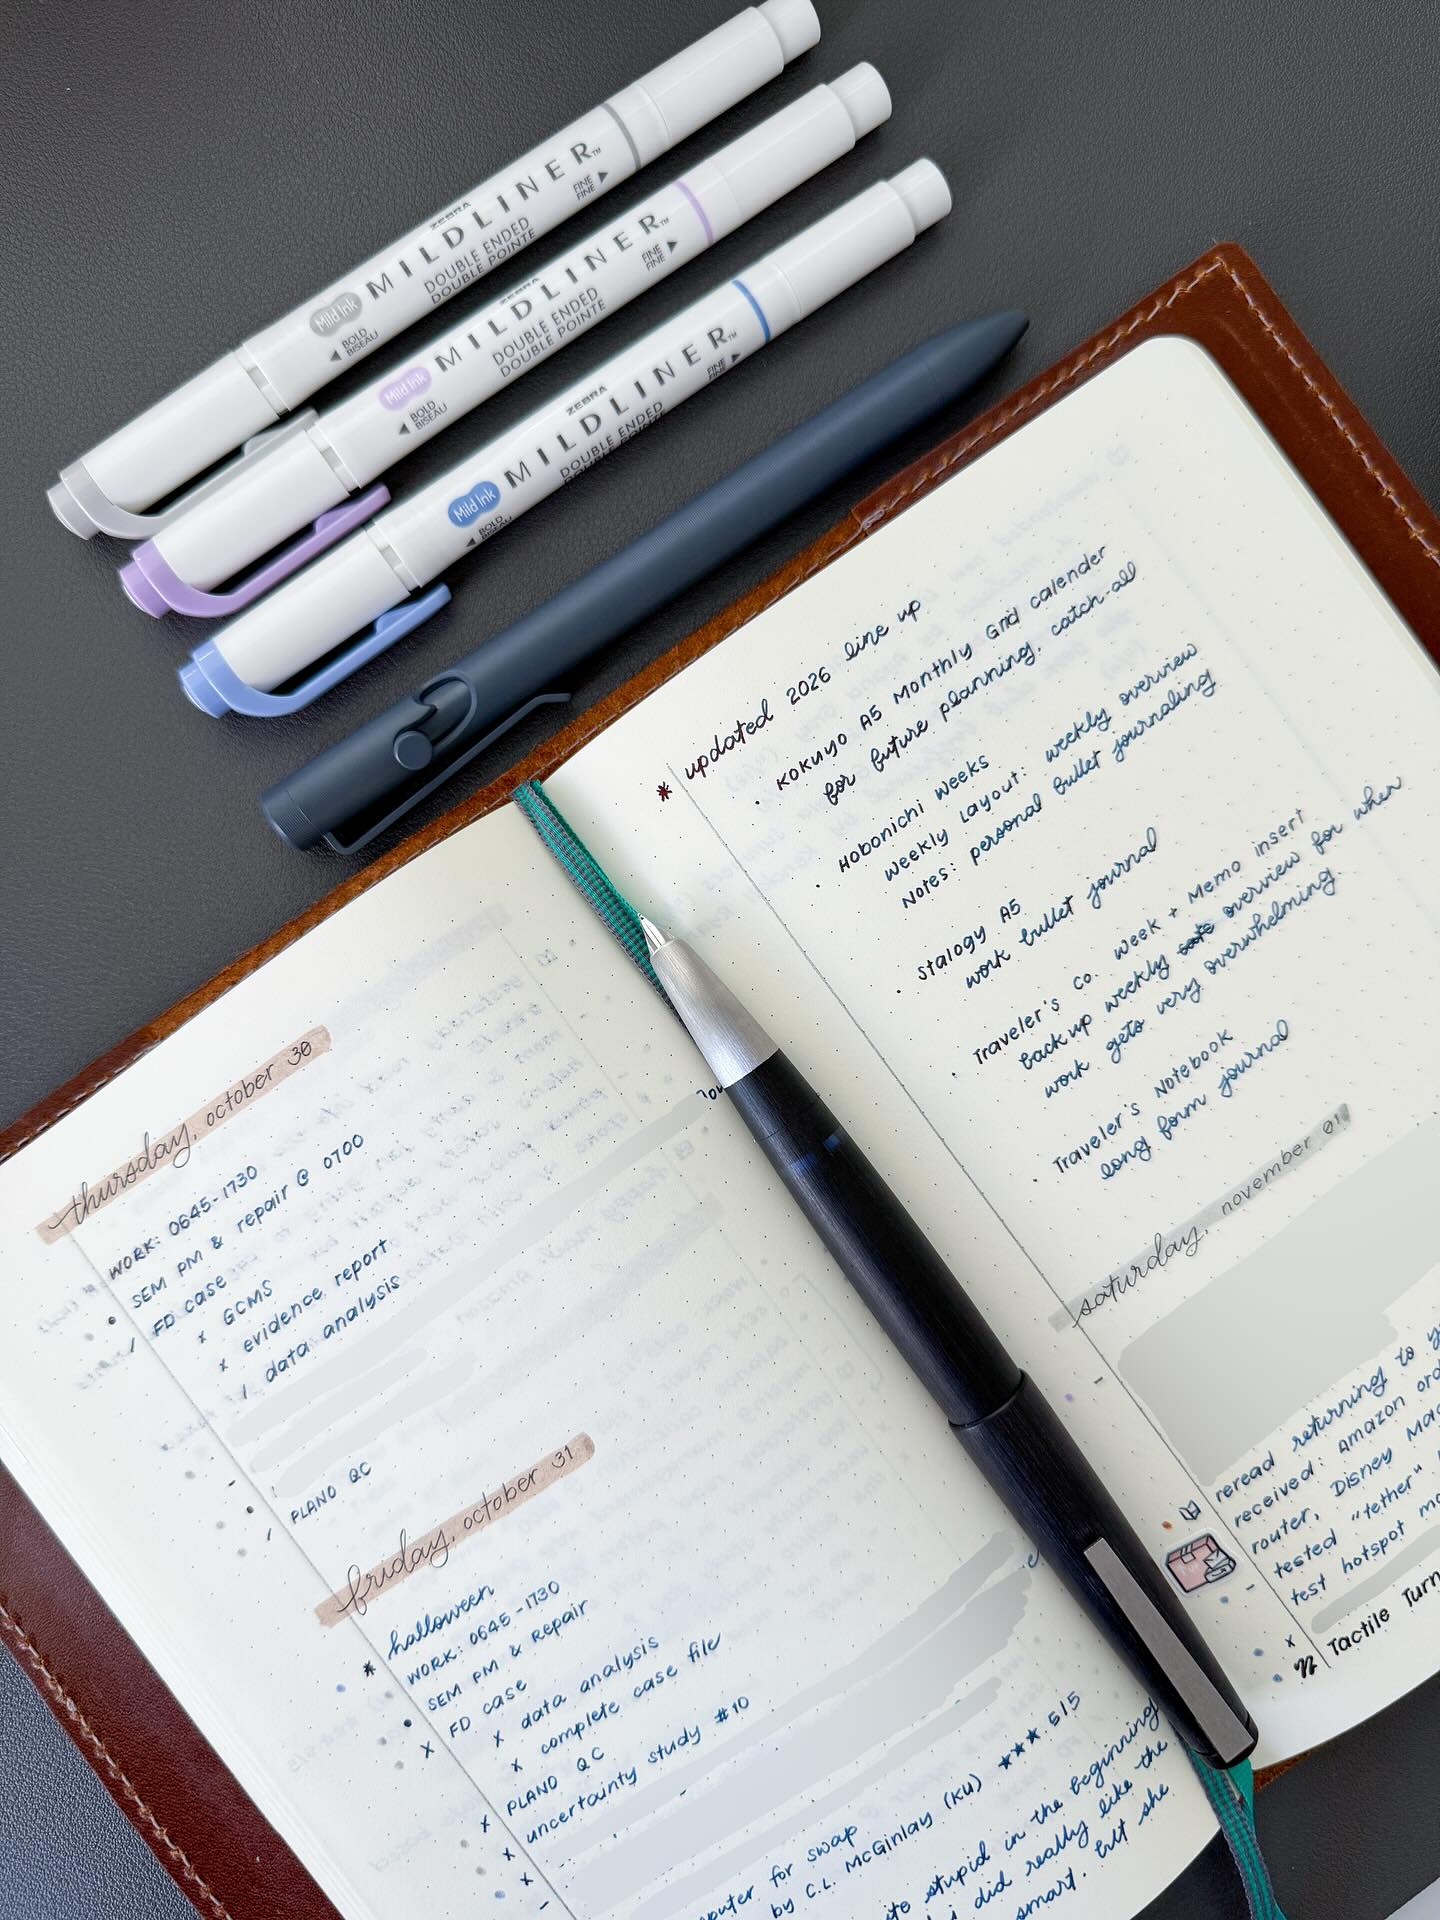 ZEBRA
MILDLINER™
Mild Ink
DOUBLE ENDED
DOUBLE POINTE
FINE
FINE
BOLD
BISEAU
ZEBRA
MILDLINER™
Mild Ink
DOUBLE ENDED
DOUBLE POINTE
FINE
FINE
BOLD
BISEAU
ZEBRA
MILDLINER™
Mild Ink
DOUBLE ENDED
DOUBLE POINTE
FINE
FINE
BOLD
BISEAU
thursday, october 30
WORK: 0645-1730
SEM PM & repair @ 0700
FD case
x GCMS
x evidence report
/ data analysis
PLANO QC
friday, october 31
* halloween
WORK: 0645-1730
SEM PM & Repair
x FD case
x data analysis
x complete case file
x PLANO QC
x uncertainty study #10
for swap
by C.L. McGinlay (KU) ★★★.5/5
stupid in the beginning
i did really like the
smart. but she
* updated 2026 line up
· KOKUYO A5 Monthly Grid calender
for future planning, catch-all
· Hobonichi weeks
weekly Layout: weekly overview
Notes: personal bullet journaling
· Stalogy A5
work bullet journal
· Traveler's Co. Week + Memo insert
back up weekly overview for when
work gets very overwhelming
· Traveler's Notebook
long form journal
saturday, november 01
reread returning to
received: Amazon
router, Disney
tested "tether"
test hotspot
x Tactile Turn